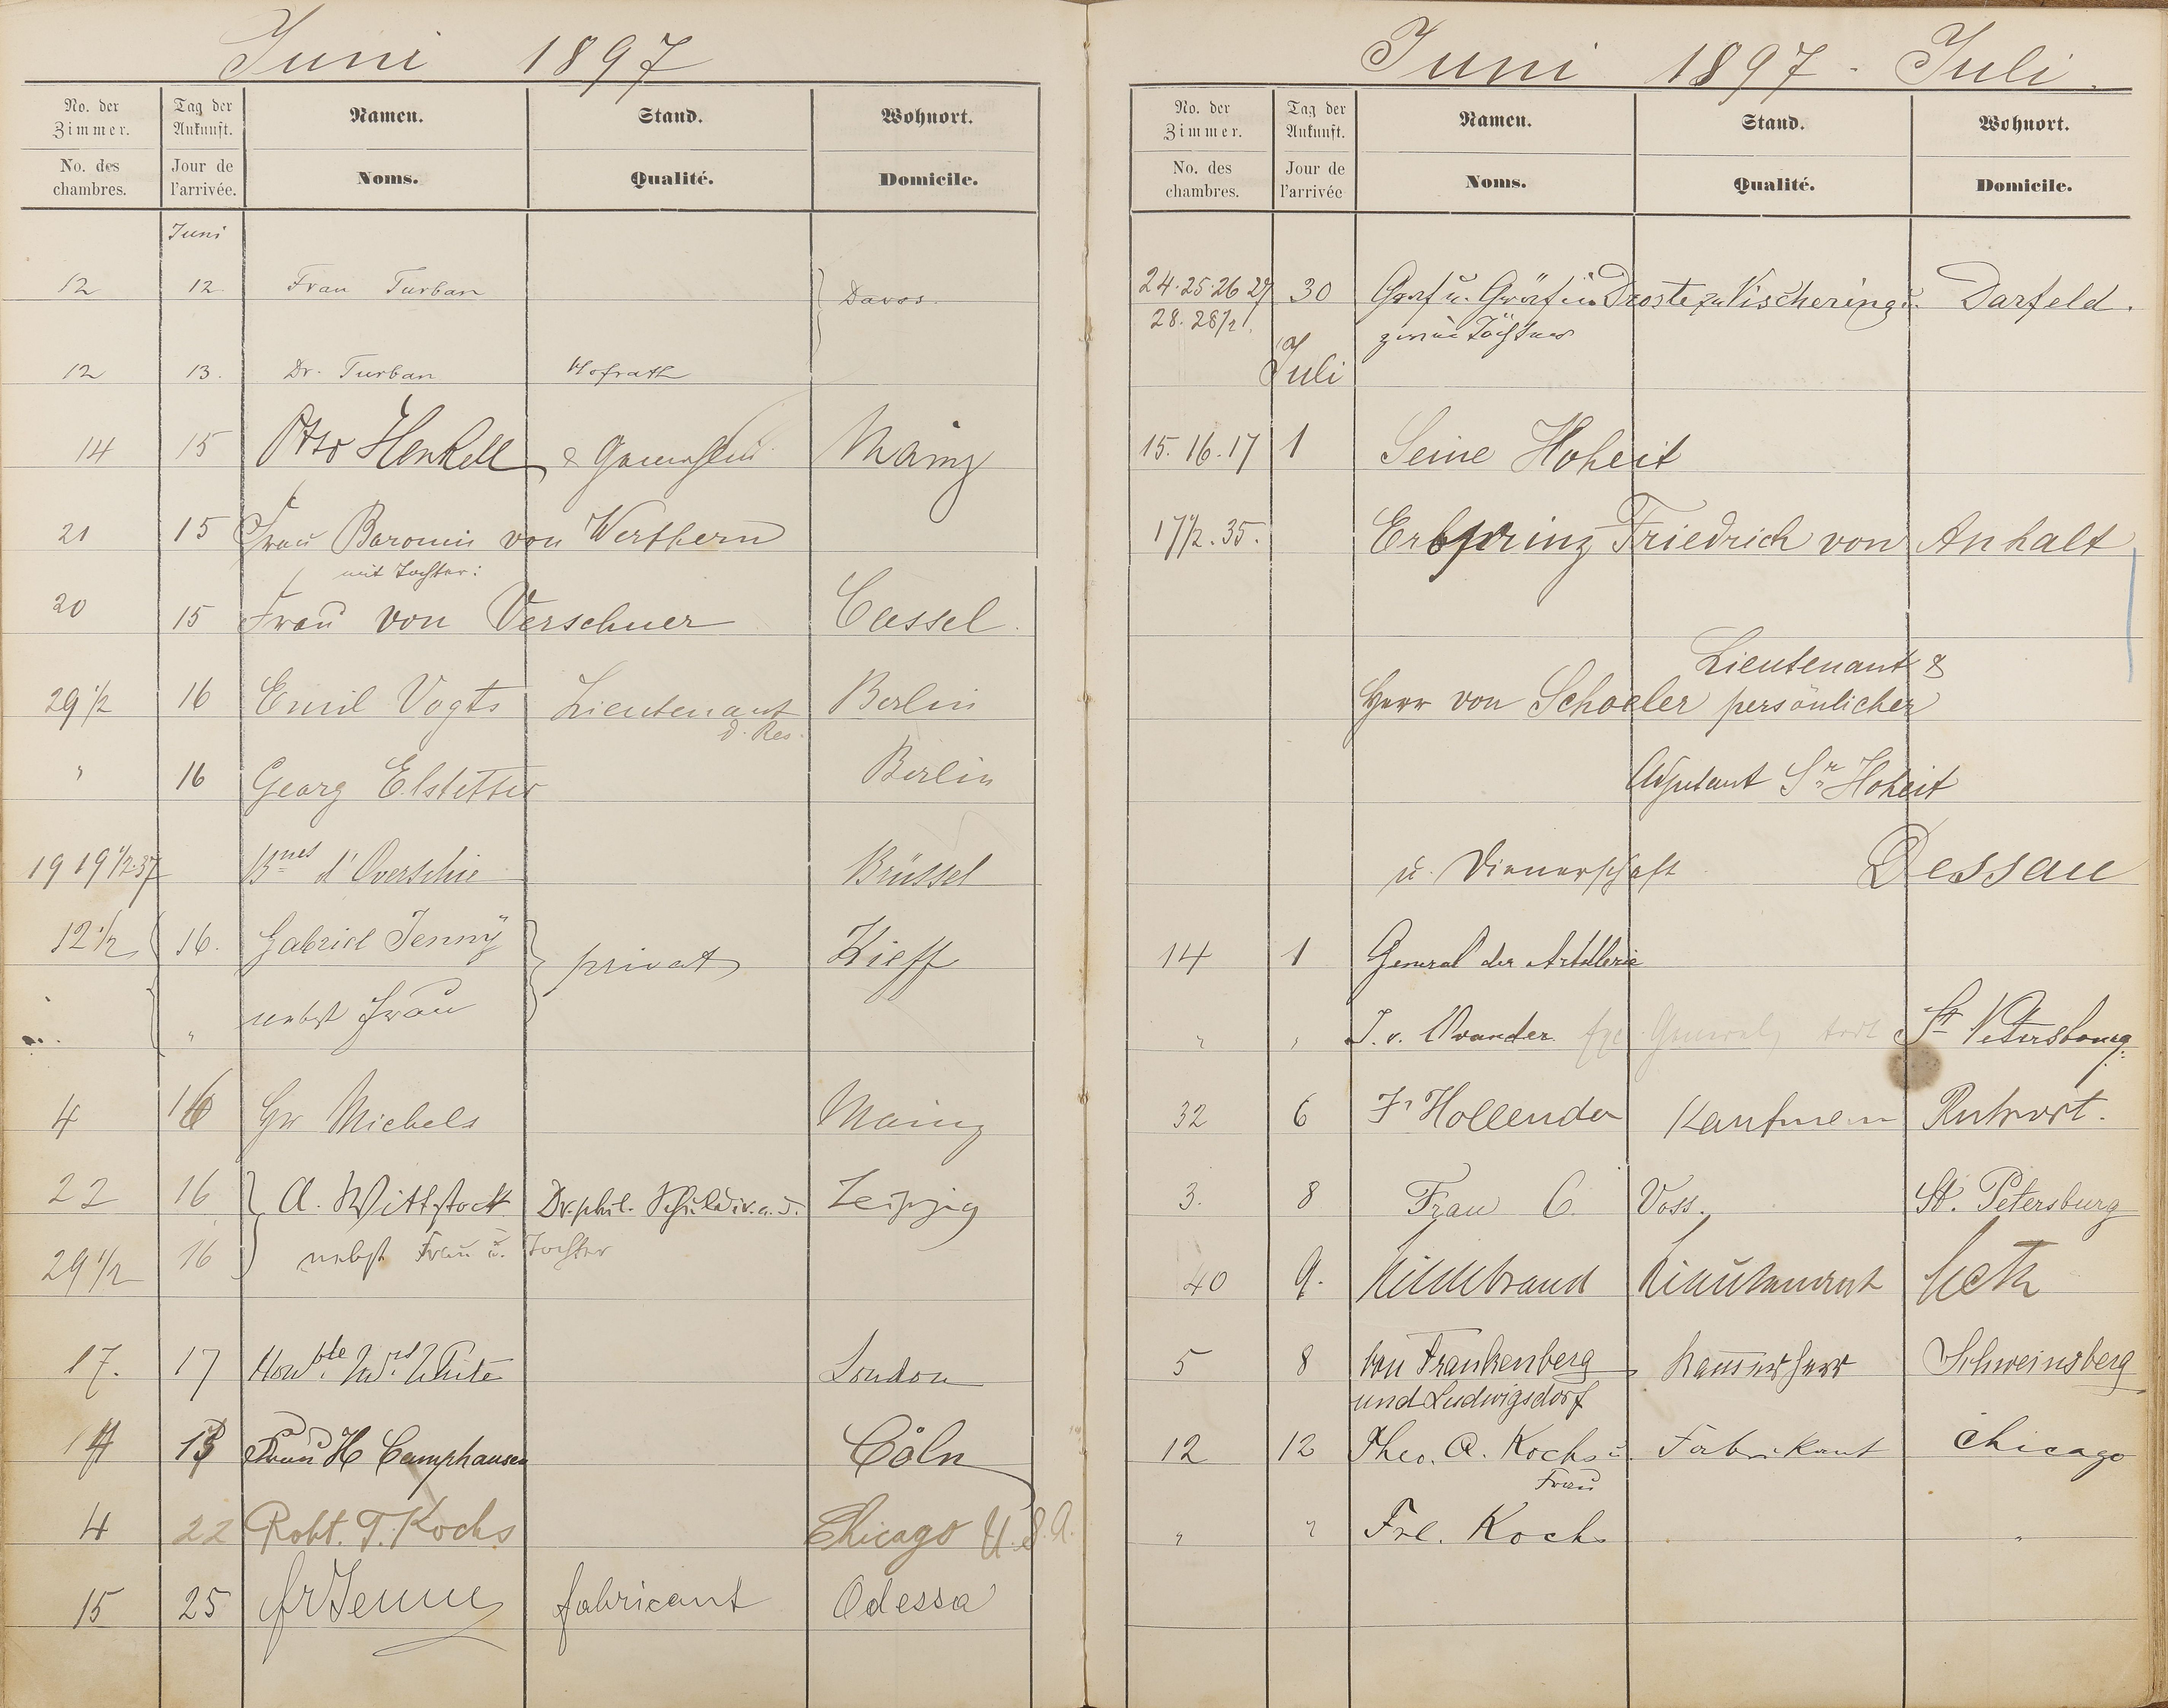 Juni 1897
No. der Zimmer. Tag der Ankunft. Namen. Stand. Wohnort.
No. des chambres. Jour de l'arrivée. Noms. Qualité. Domicile.
Juni
12 12 Frau Turban Davos.
12 13. Dr. Turban Hofrath
14 15 Otto Henkell & Gemahlin Mainz
21 15 Frau Baronin von Werthern
mit Tochter:
20 15 Frau von Verschuer Cassel.
29 1/2 16 Emil Vogts Lieutenant Berlin
d. Res.
" 16 Georg Elstetter Berlin
19 19 1/2 37 Bnes d'Overschie Brüssel
12 1/2 16. Gabriel Jenny privat Kieff
" nebst Frau
4 16 Michels Mainz
22 16 A. Wittstock Dr. phil. Schuldir. a. D. Leipzig
29 1/2 16 nebst Frau u. Tochter
17. 17 Honble Mrs White London
Frau H Camphausen Cöln
4 22 Robt. T. Kochs Chicago U.S.A.
15 25 Jenny fabricant Odessa
Juni 1897 - Juli.
No. der Zimmer. Tag der Ankunft. Namen. Stand. Wohnort.
No. des chambres. Jour de l'arrivée Noms. Qualité. Domicile.
24. 25. 26 27 30 Graf u. Gräfin Droste zu Vischering u. Darfeld.
28. 28 1/2. zwei Töchter
Juli
15. 16. 17 1 Seine Hoheit
17 1/2. 35. Erbprinz Friedrich von Anhalt
Lieutenant &
Herr von Schoeler persönlicher
Adjutant Sr Hoheit
u. Dienerschaft Dessau
14 1 General der Artillerie
" " J. v. General St Petersbourg.
32 6 Fr Hollender Kaufmann Ruhrort.
3. 8 Frau C. Voss. St. Petersburg
40 9. Hildebrand Lieutenant Metz
5 8 von Frankenberg Kammerherr Schweinsberg
und Ludwigsdorf
12 12 Theo. A. Kochs u. Fabrikant Chicago
Frau
" " Frl. Kochs "